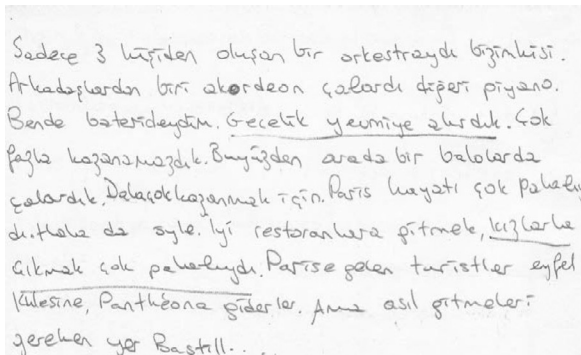 Sadece 3 kişiden oluşan bir orkestraydı bizimkisi.
Arkadaşlardan biri akordeon çalardı diğeri piyano.
Bende baterideydim. Gecelik yevmiye alırdık. Çok
fazla kazanamazdık. Buyüzden arada bir balolarda
çalardık. Dahaçok kazanmak için. Paris hayatı çok pahalıy
dı. Hala da öyle. İyi restoranlara gitmek, kızlarla
çıkmak çok pahalıydı. Parise gelen turistler eyfel
Kulesine, Panthéona giderler. Ama asıl gitmeleri
gereken yer Bastill.....